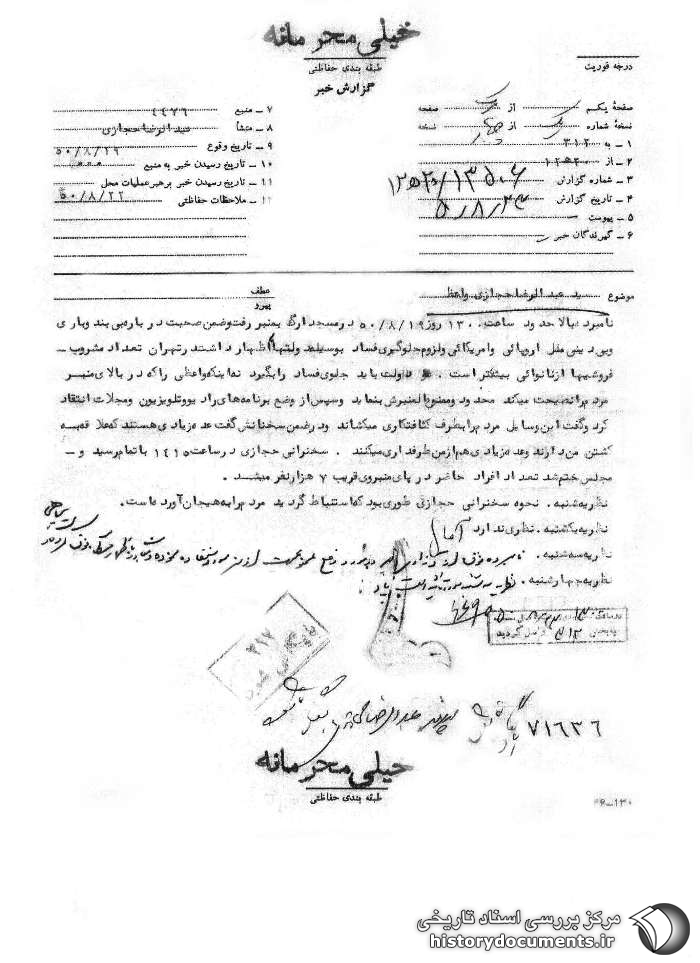 خیلی محرمانه
طبقه بندی حفاظتی
گزارش خبر
درجه فوریت
صفحهٔ یکم از یک صفحه
نسخهٔ شماره از چهار نسخه
۱ ـ به ۳۱۲
۲ ـ از ۱۲ ه ۲۰
۳ ـ شماره گزارش ۱۲ه۲۰/۱۳۵۰۶
۴ ـ تاریخ گزارش
۵ ـ پیوست
۶ ـ گیرندگان خبر
۷ ـ منبع ۱۴۷۶
۸ ـ منشأ عبدالرضا حجازی
۹ ـ تاریخ وقوع ۵۰/۸/۱۹
۱۰ ـ تاریخ رسیدن خبر به منبع
۱۱ ـ تاریخ رسیدن خبر برهبر عملیات محل
۱۲ ـ ملاحظات حفاظتی ۵۰/۸/۲۲
موضوع سید عبدالرضا حجازی واعظ
عطف
پیرو
نامبرده بالا حدود ساعت ۱۳۰۰ روز ۵۰/۸/۱۹ در مسجد ارگ بمنبر رفت و ضمن صحبت در باره بی بندوباری
و بی دینی ملل اروپائی و امریکائی و لزوم جلوگیری فساد بوسیله دولتها اظهار داشت در تهران تعداد مشروب ـ
فروشیها از نانوائی بیشتر است . دولت باید جلوی فساد را بگیرد نه اینکه واعظی را که در بالای منبر
مردم را نصیحت میکند محدود و ممنوع المنبرش بنماید و سپس از وضع برنامه های رادیو و تلویزیون و مجلات انتقاد
کرد و گفت این وسایل مردم را بطرف کثافتکاری میکشاند و در ضمن سخنانش گفت عده زیادی هستند که علاقه به
کشتن من دارند و عده زیادی هم از من طرفداری میکنند . سخنرانی حجازی در ساعت ۱۴۱۵ با تمام رسید و ـ
مجلس ختم شد تعداد افراد حاضر در پای منبر وی قریب ۷ هزار نفر میشد .
نظریه شنبه . نحوه سخنرانی حجازی طوری بود که استنباط گردید مردم را به هیجان آورده است .
نظریه یکشنبه . نظری ندارد
نظریه سه شنبه . نامبرده فوق
نظریه چهارشنبه . نظریه سه شنبه مورد تایید است
۳۱۲
بایگانی شود
پرونده عبدالرضا حجازی
۷۱۶۳۶
خیلی محرمانه
طبقه بندی حفاظتی
۰۶-۱۳۰
مرکز بررسی اسناد تاریخی
historydocuments.ir